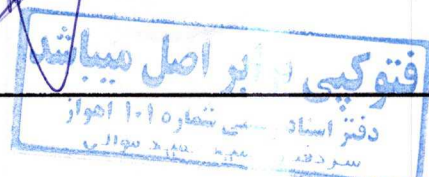 فتوکپی برابر اصل میباشد
دفتر اسناد رسمی شماره ۱۰۱ اهواز
سردفتر سید